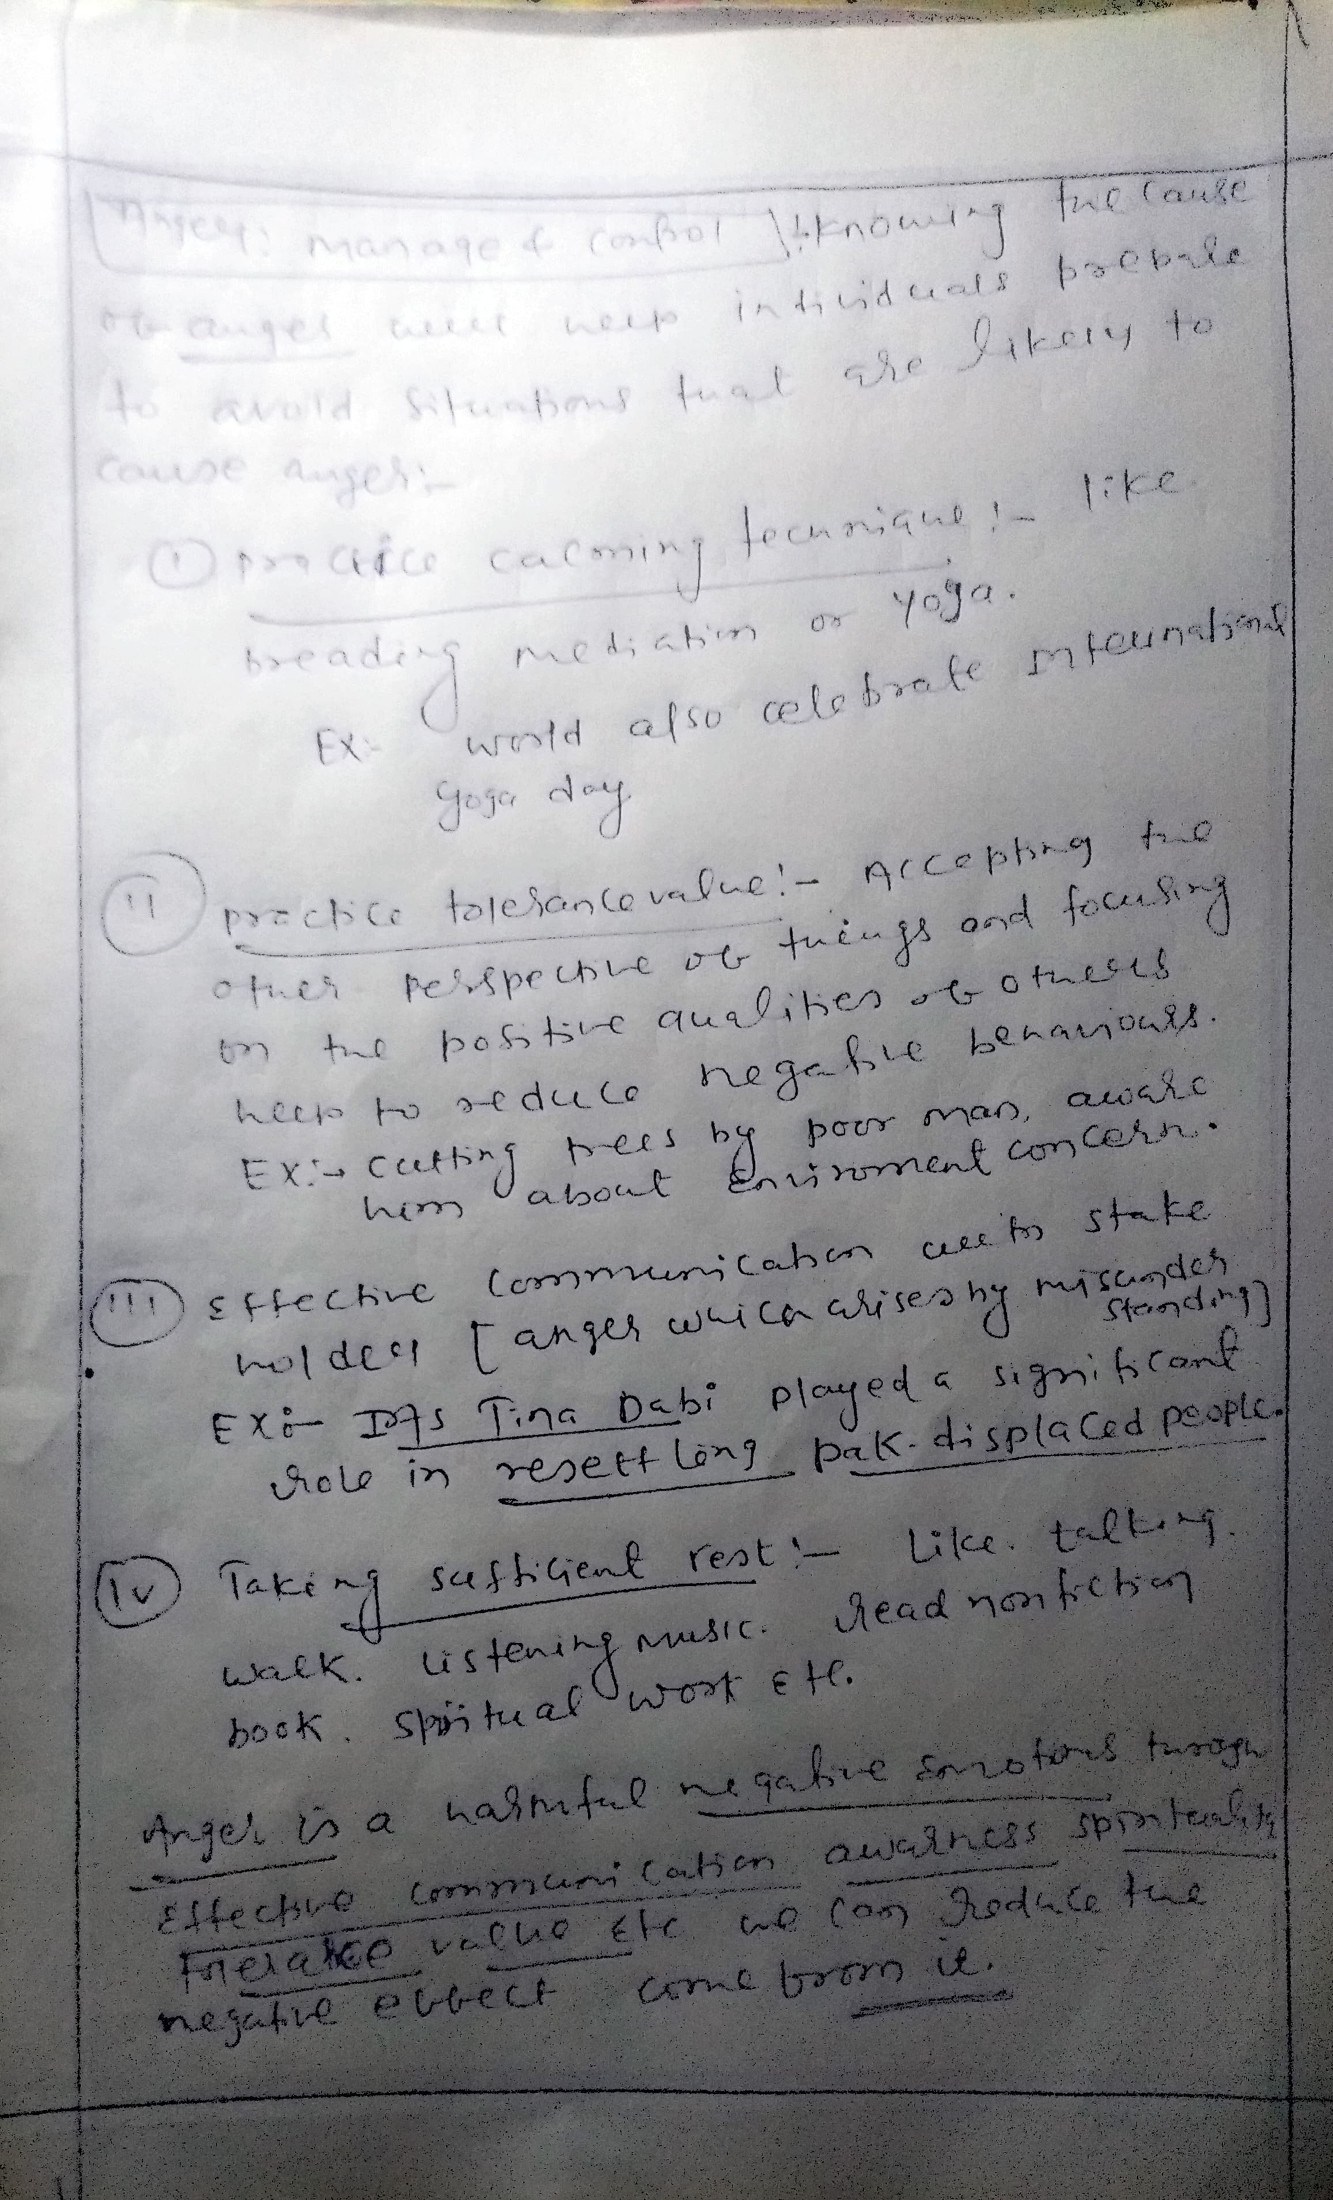 Anger: manage & control :- knowing the cause
of anger will help individuals prepare
to avoid situations that are likely to
cause anger:-
(I) practice calming technique :- like
breading mediation or yoga.
Ex:- world also celebrate international
yoga day.
(II) practice tolerance value:- Accepting the
other perspective of things and focusing
on the positive qualities of others
help to reduce negative behaviours.
Ex:- cutting trees by poor man, aware
him about Enviroment concern.
(III) Effective communication with stake
holder [anger which arises by misunder
standing]
Ex:- IAS Tina Dabi played a significant
role in resettling pak-displaced people.
(IV) Taking sufficient rest:- Like. talking.
walk. listening music. Read nonfiction
book. Spiritual work Etc.
Anger is a harmful negative emotions through
Effective communication awarness spirituality
Tolerance value Etc we can Reduce the
negative effect come from it.